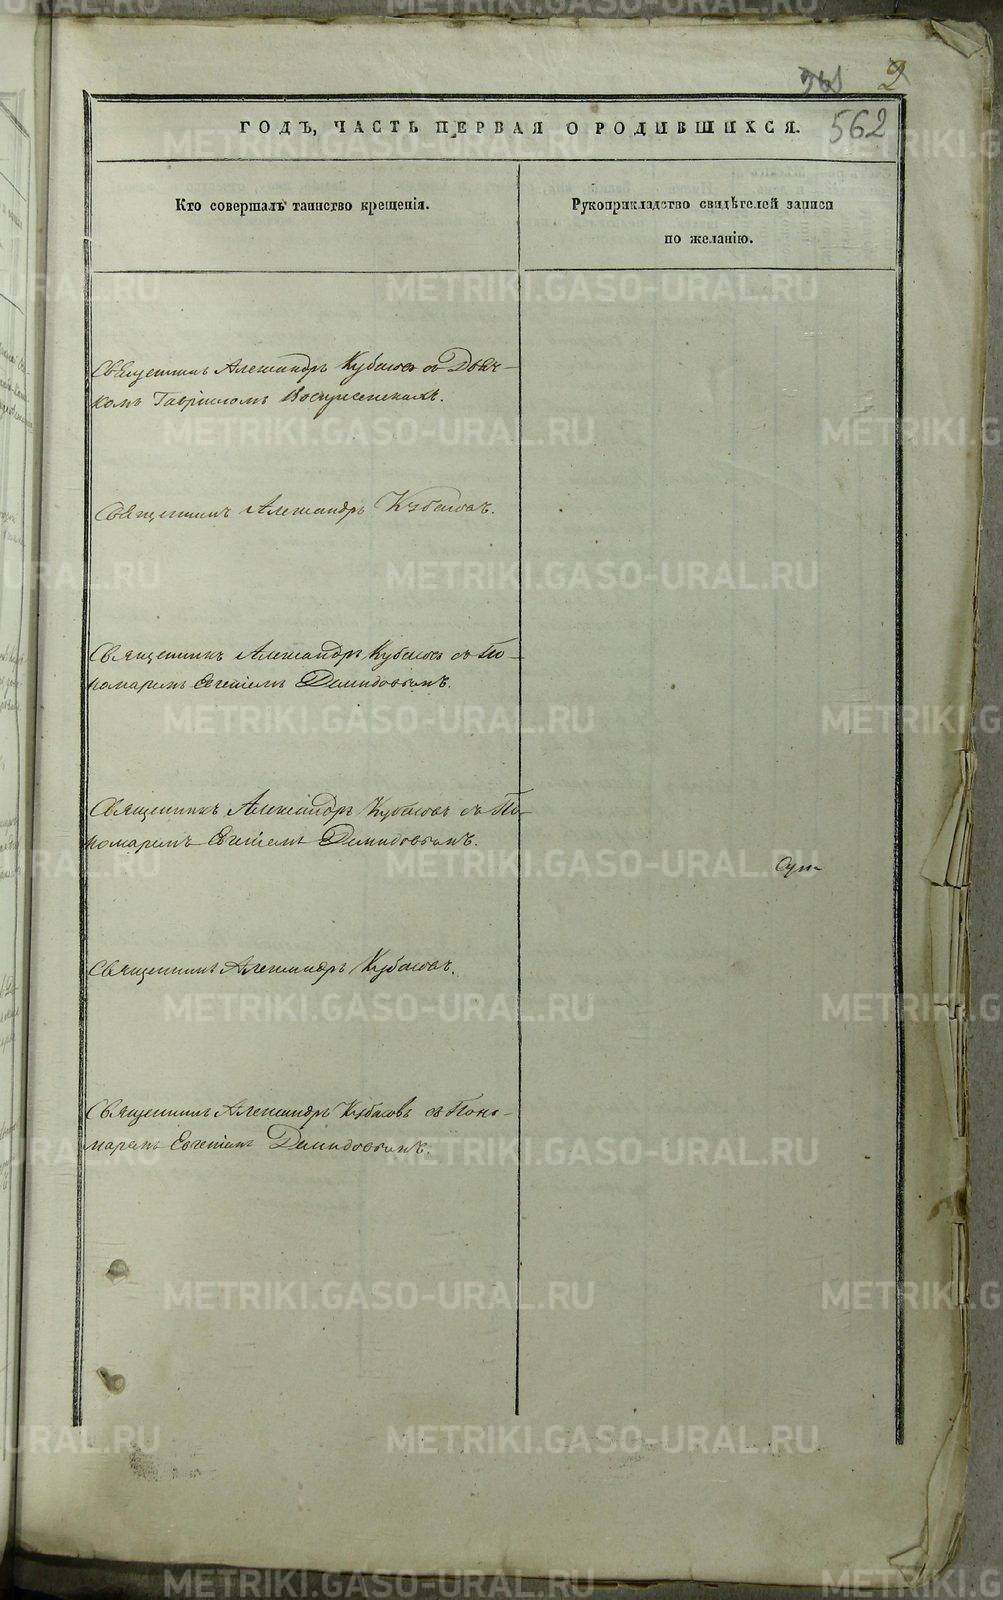 2
562
ГОДЪ, ЧАСТЬ ПЕРВАЯ О РОДИВШИХСЯ.
Кто совершалъ таинство крещенія.
Рукоприкладство свидѣтелей записи
по желанію.
Священникъ Александръ Кубасовъ съ Дьяч-
комъ Гавріиломъ Воскресенскимъ.
Священникъ Александръ Кубасовъ.
Священникъ Александръ Кубасовъ съ По-
номаремъ Евгеніемъ Демидовымъ.
Священникъ Александръ Кубасовъ съ По-
номаремъ Евгеніемъ Демидовымъ.
Священникъ Александръ Кубасовъ.
Священникъ Александръ Кубасовъ съ Поно-
маремъ Евгеніемъ Демидовымъ.
METRIKI.GASO-URAL.RU